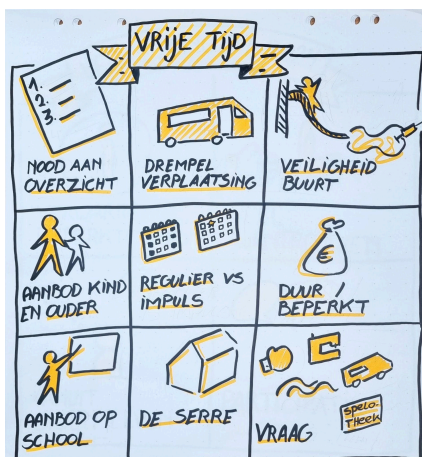 VRIJE TIJD
1.
2.
3.
NOOD AAN
OVERZICHT
DREMPEL
VERPLAATSING
VEILIGHEID
BUURT
AANBOD KIND
EN OUDER
REGULIER VS
IMPULS
€
DUUR /
BEPERKT
AANBOD OP
SCHOOL
DE SERRE
SPELO-
THEEK
VRAAG